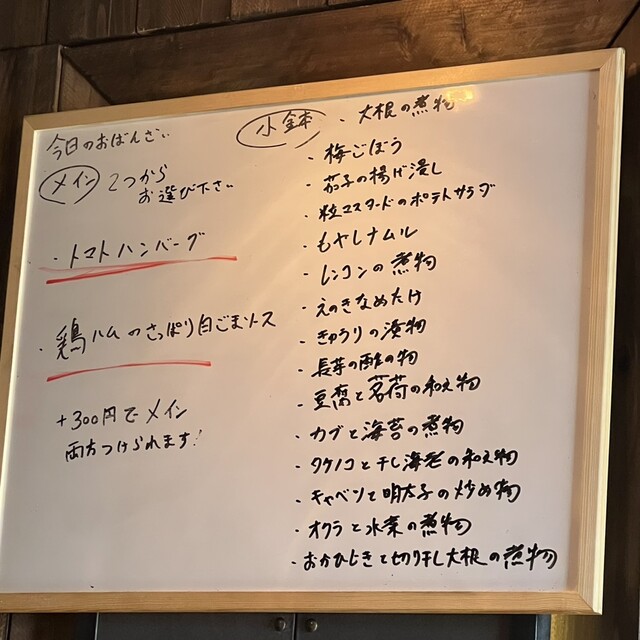 今日のおばんざい
メイン 2つから
お選び下さい
・トマトハンバーグ
・鶏ハムのさっぱり白ごまソース
+300円でメイン
両方つけられます!
小鉢
・大根の煮物
・梅ごぼう
・茄子の揚げ漬し
・粒マスタードのポテトサラダ
・もやしナムル
・レンコンの煮物
・えのきなめたけ
・きゅうりの漬物
・長芋の酢の物
・豆腐と茗荷の和え物
・カブと海苔の煮物
・タケノコと干し海老の和え物
・キャベツと明太子の炒め物
・オクラと水菜の煮物
・おかひじきと切り干し大根の煮物